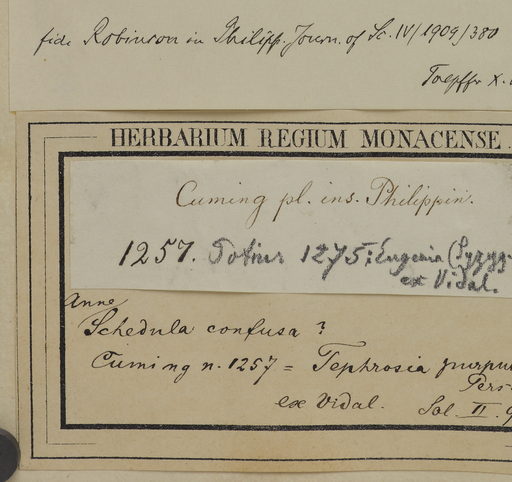 fide Robinson in Philipp. Journ. of Sc. IV/1909/380
Toepffr X.
HERBARIUM REGIUM MONACENSE.
Cuming pl. ins. Philippin.
1257. Potius 1275: Eugenia (Syzyg-
ex Vidal.
Anne
Schedula confusa?
Cuming n. 1257 = Tephrosia purpu
Pers-
ex Vidal. Sol. II.